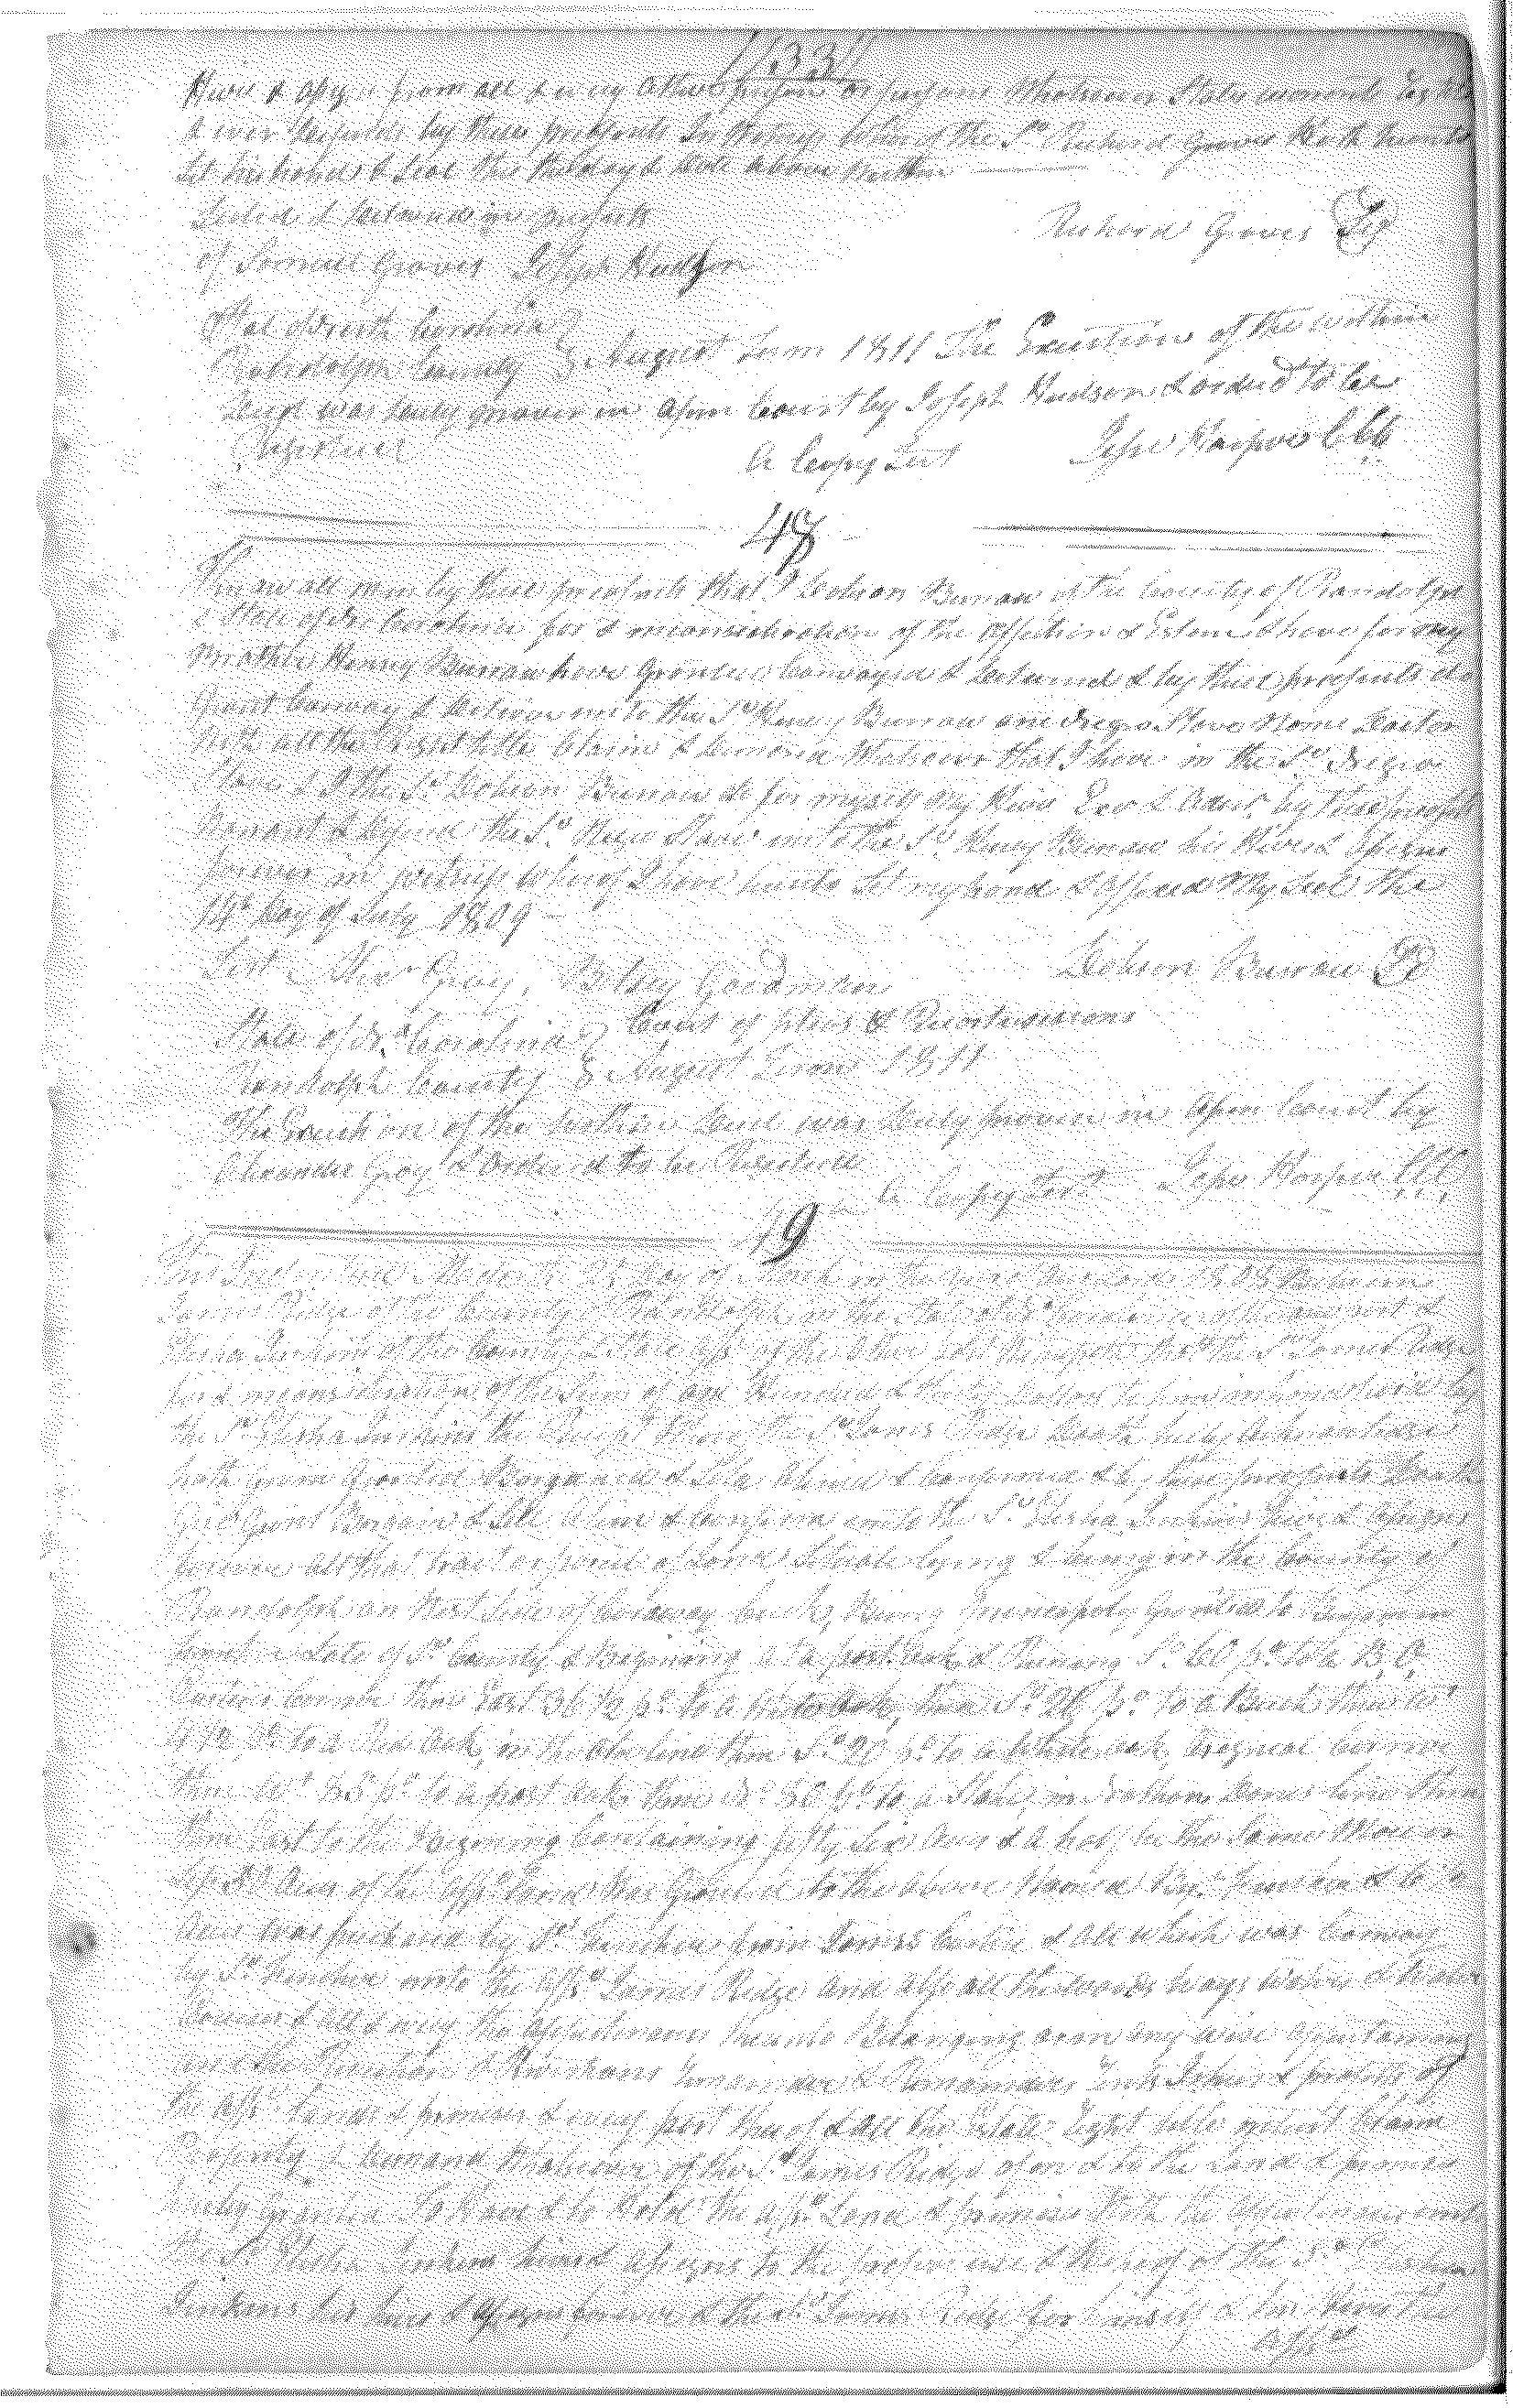 /133/
Heirs & assigns from all & every other person or persons Whatsoever Shall warrant
& ever defende by these presents In Witness whereof the Sd Richard Graves Hath hereunto
Set his hand & Seal the day & date above written
Sealed & delivered in presents
of Graves Joseph Hudson
Richard Graves
State of North Carolina
Randolph County August Term 1811 The Execution of the within
Deed was duly proven in open Court by Joseph Hudson & ordred to be
Registered A Copy Test Jesse Harper CCC
48
Know all men by these presents that I Dobson Burrow of the County of Randolph
& State of No Carolina for & in consideration of the Affection & Esteem I have for my
Brother Henry Burrow have Granted Conveyed & delivered & by these presents do
Grant Convey & deliver unto the Sd Henry Burrow one Negro Slave Name
With all the Right title Claim & demand Whatsoever that I have in the Sd Negro
Slave & I the Sd Dobson Burrow do for myself my Heirs Exr & Admr by these presents
Warrant & defend the Sd Negro Slave unto the Sd Henry Burrow his Heirs & Assigns
forever in witness whereof I have hereunto Set my hand & Affixed My Seal the
14th day of July 1809
Test Alexr Gray, Betsey Goodman
Dobson Burrow
State of No Carolina Court of pleas & Quartersessions
Randolph County August Term 1811
The Execution of the within deed was duly proven in open Court by
Alexander Gray & Ordered to be Registered
A Copy Test Jesse Harper CCC
49
This Indenture Made the 2d day of March in the year 1808 Between
James Ridge of the County of Randolph in the State of No Carolina of the one part &
Elisha Jenkins of the County & State Affsd of the Other part Witnesseth that the Sd James Ridge
for & in consideration of the Sum of one Hundred & thirty Dollars to him in hand paid by
the Sd Elisha Jenkins the Receipt Whereof the Sd James Ridge Doath hereby Acknowledge
hath given Granted Bargained & Sold Aliened & Confirmed & by these presents Doath
Give Grant Bargain & Sell Alien & Confirm unto the Sd Elisha Jenkins Heirs & Assigns
forever all that tract or parcel of Land Situate lying & being in the County of
Randolph on West Side of Caraway Creek, Being Principaly Granted to Benjamin
late of Sd County & Begining at a post oak & Runing So 60 po to a B.O.
Corner thence East 36 1/2 po to a white oak, then So 26 po to a Beech then Wt
to a Red Oak, in the old line then So 20 po to a White oak, Original Corner
then Wt 85 po to a post oak then No 80 po to a Stake in line then
then East to the Begining Containing fifty Six Acres & A half be the Same More or
less Acres of the Affsd Land Was Granted to the above Named
Acres was purchased by Sd from James & all which was Convey
by Sd unto the Affsd James Ridge and also all the woods ways waters & water
Courses & all & every the appurtenances thereunto Belonging or in any wise appertaining
and the Reversion & Reversions Remainder & Remainders Rents Ishues & profits of
the Affsd Land & premises & every part there of & all the Estate Right title intrest Claim
Property & demand Whatsoever of the Sd James Ridge of in & to the Land & premises
hereby Granted To Have & to Hold the Affsd Land & premises With the Appurtenances unto
the Sd Elisha Jenkins heirs & assigns to the proper use & behoof of the Sd Elisha
Jenkins his heirs & Assigns forever & the Sd James Ridge for himself & his Heirs the
Affsd